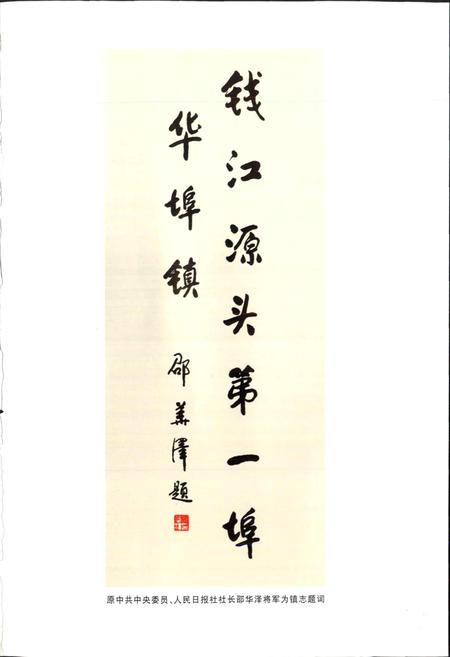 钱江源头第一埠
华埠镇
邵华泽题
原中共中央委员、人民日报社社长邵华泽将军为镇志题词